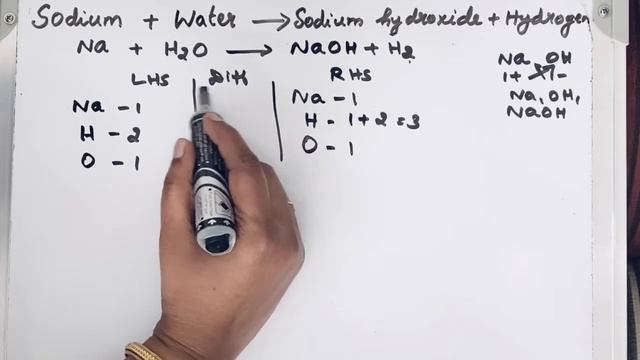 Sodium + Water → Sodium hydroxide + Hydrogen
Na + H₂O → NaOH + H₂
LHS RHS
Na - 1
H - 2
O - 1
Na - 1
H - 1 + 2 = 3
O - 1
Na OH
1+ 1-
Na₁ OH₁
NaOH